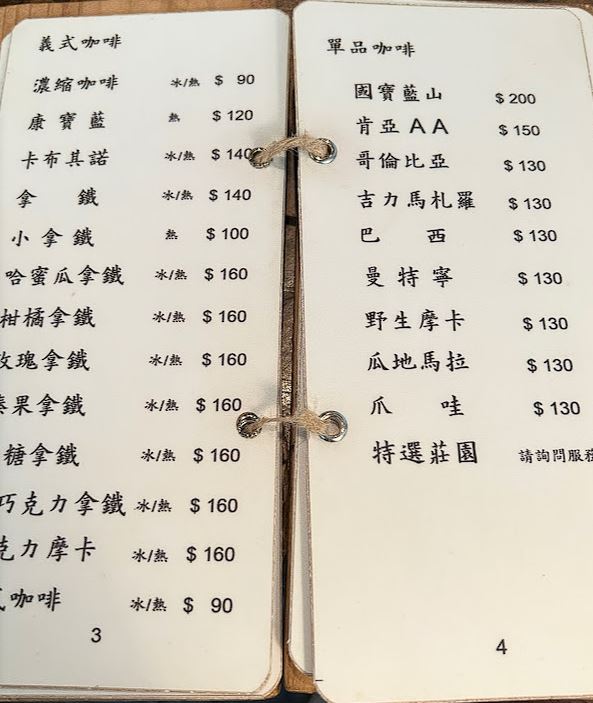 義式咖啡
濃縮咖啡 冰/熱 $ 90
康寶藍 熱 $ 120
卡布其諾 冰/熱 $ 140
拿 鐵 冰/熱 $ 140
小拿鐵 熱 $ 100
哈蜜瓜拿鐵 冰/熱 $ 160
柑橘拿鐵 冰/熱 $ 160
玫瑰拿鐵 冰/熱 $ 160
果拿鐵 冰/熱 $ 160
糖拿鐵 冰/熱 $ 160
巧克力拿鐵 冰/熱 $ 160
克力摩卡 冰/熱 $ 160
咖啡 冰/熱 $ 90
3
單品咖啡
國寶藍山 $ 200
肯亞AA $ 150
哥倫比亞 $ 130
吉力馬札羅 $ 130
巴 西 $ 130
曼特寧 $ 130
野生摩卡 $ 130
瓜地馬拉 $ 130
爪 哇 $ 130
特選莊園 請詢問服務
4